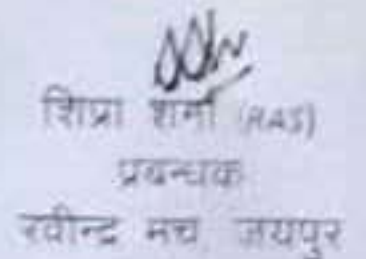 शिप्रा शर्मा (RAS)
प्रबन्धक
रवीन्द्र मंच, जयपुर